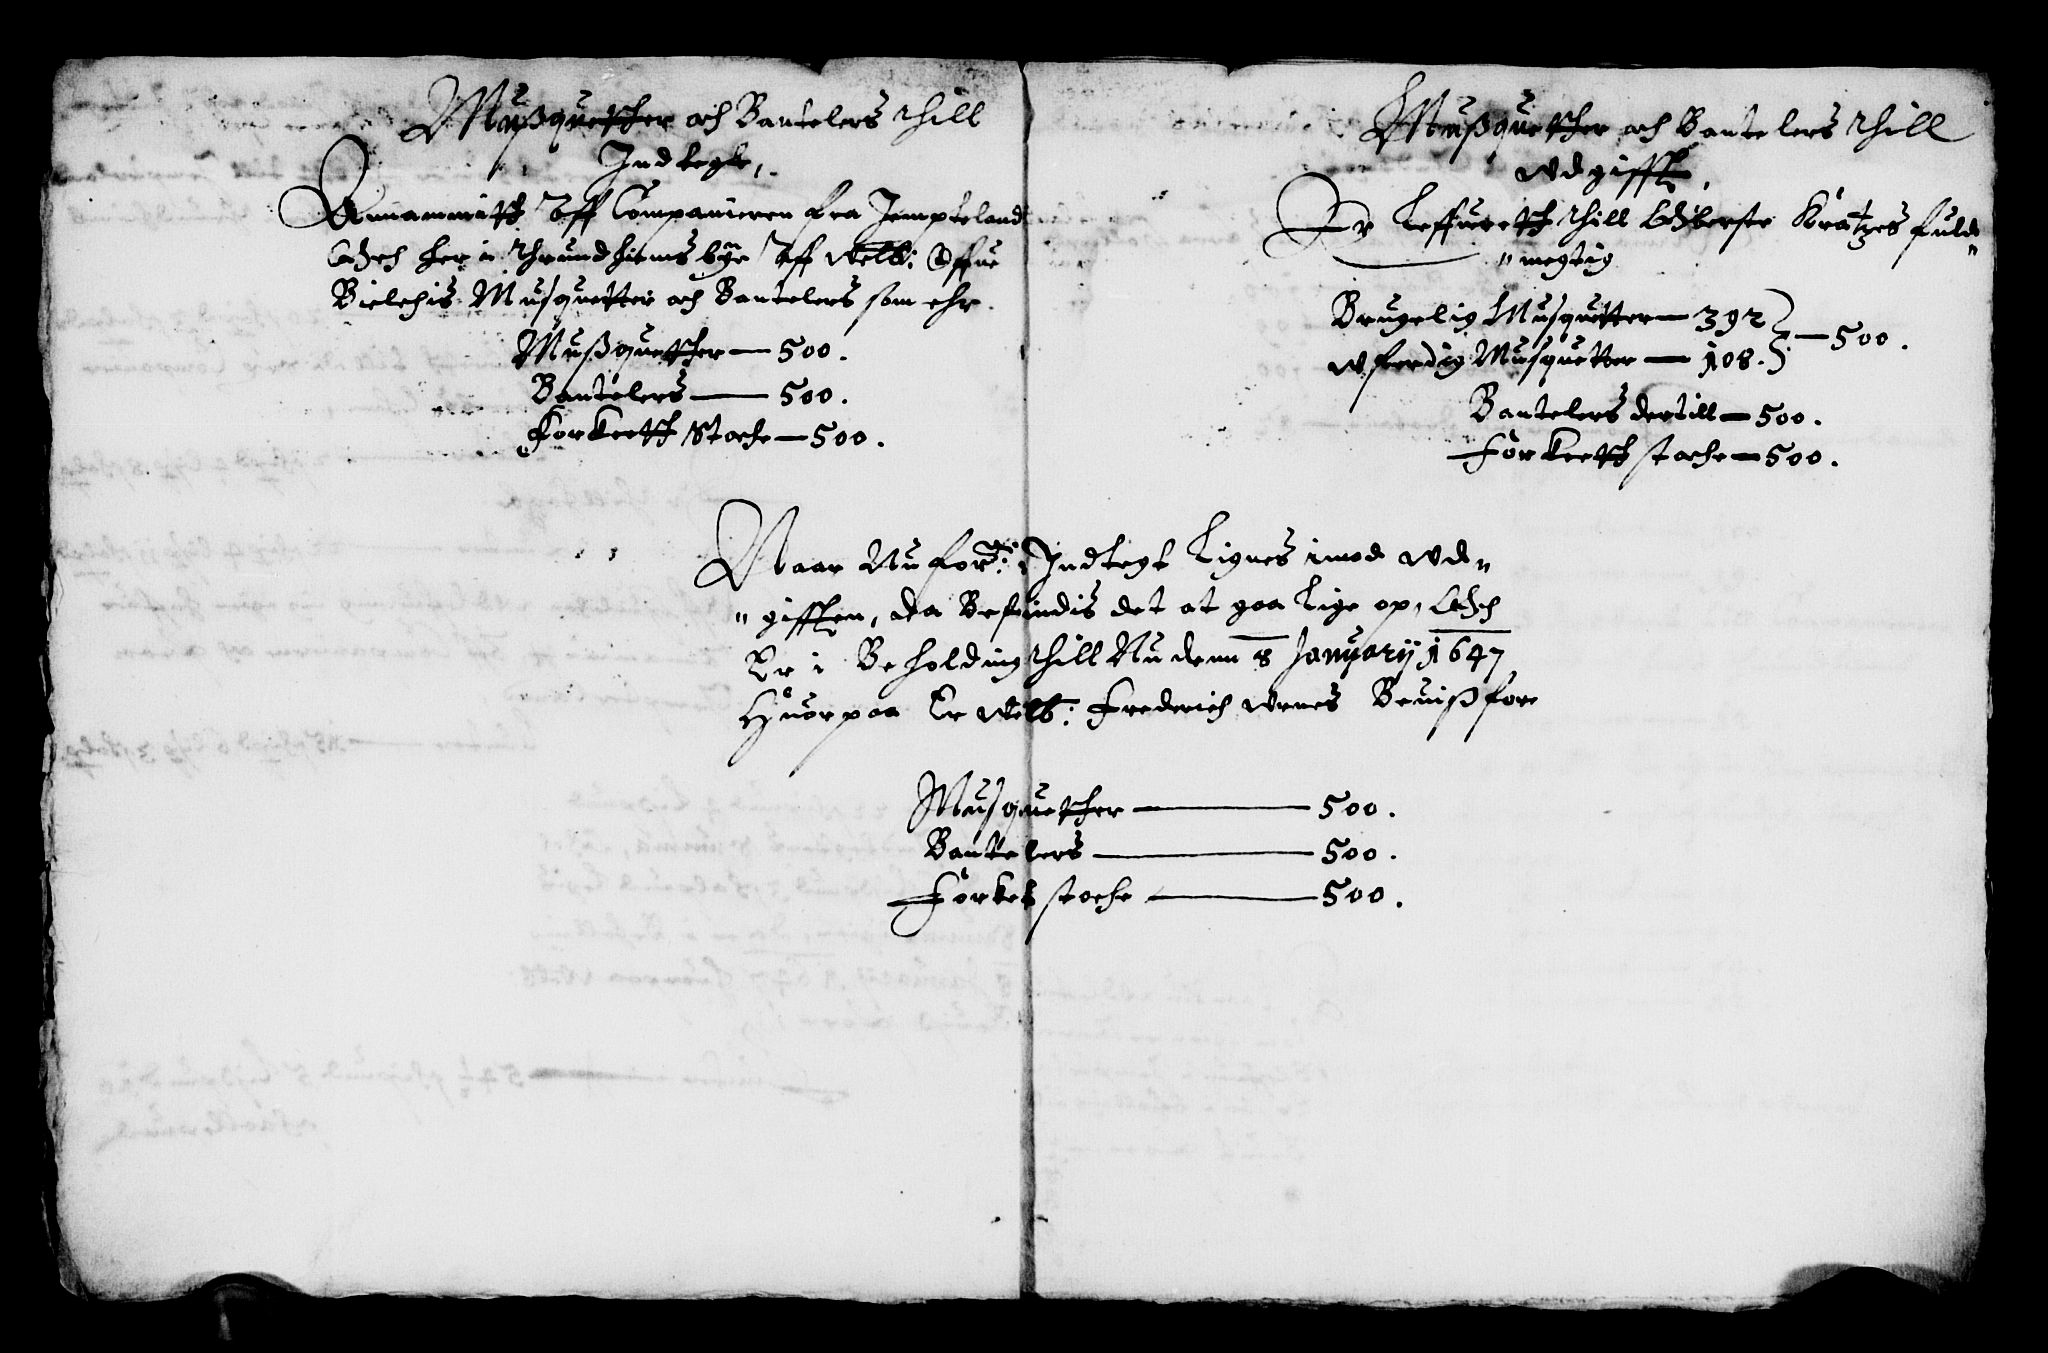 Mußquetther och Bantelers thill
Indtegt,
Annammitt Aff Companieren fra Jempteland
Och her i thrundhiems bye Aff Welb: Offue
Bielchis Musquetter och Bantelers som ehr.
Mußquetther — 500.
Bantelers — 500.
Forkeett Stoche — 500.
Mußquetther och Bantelers thill
wdgifft,
Er Leffuerett thill Oberste Kratzes fuld-
"megtig
Brugelig Musquetter — 392
wferdig Musquetter — 108. — 500.
Bantelers dertill — 500.
Forkeett stoche — 500.
Naar Nu for: Indtegt Lignes imod wd"
"gifften, da Befindis det at gaa Lige op, Och
Er i Beholding thill Nu denn 8 January 1647
Huorpaa Er Welb: Frederich Wrnes Beuiß fore
Musquetther — 500.
Bantelers — 500.
Forket stoche — 500.